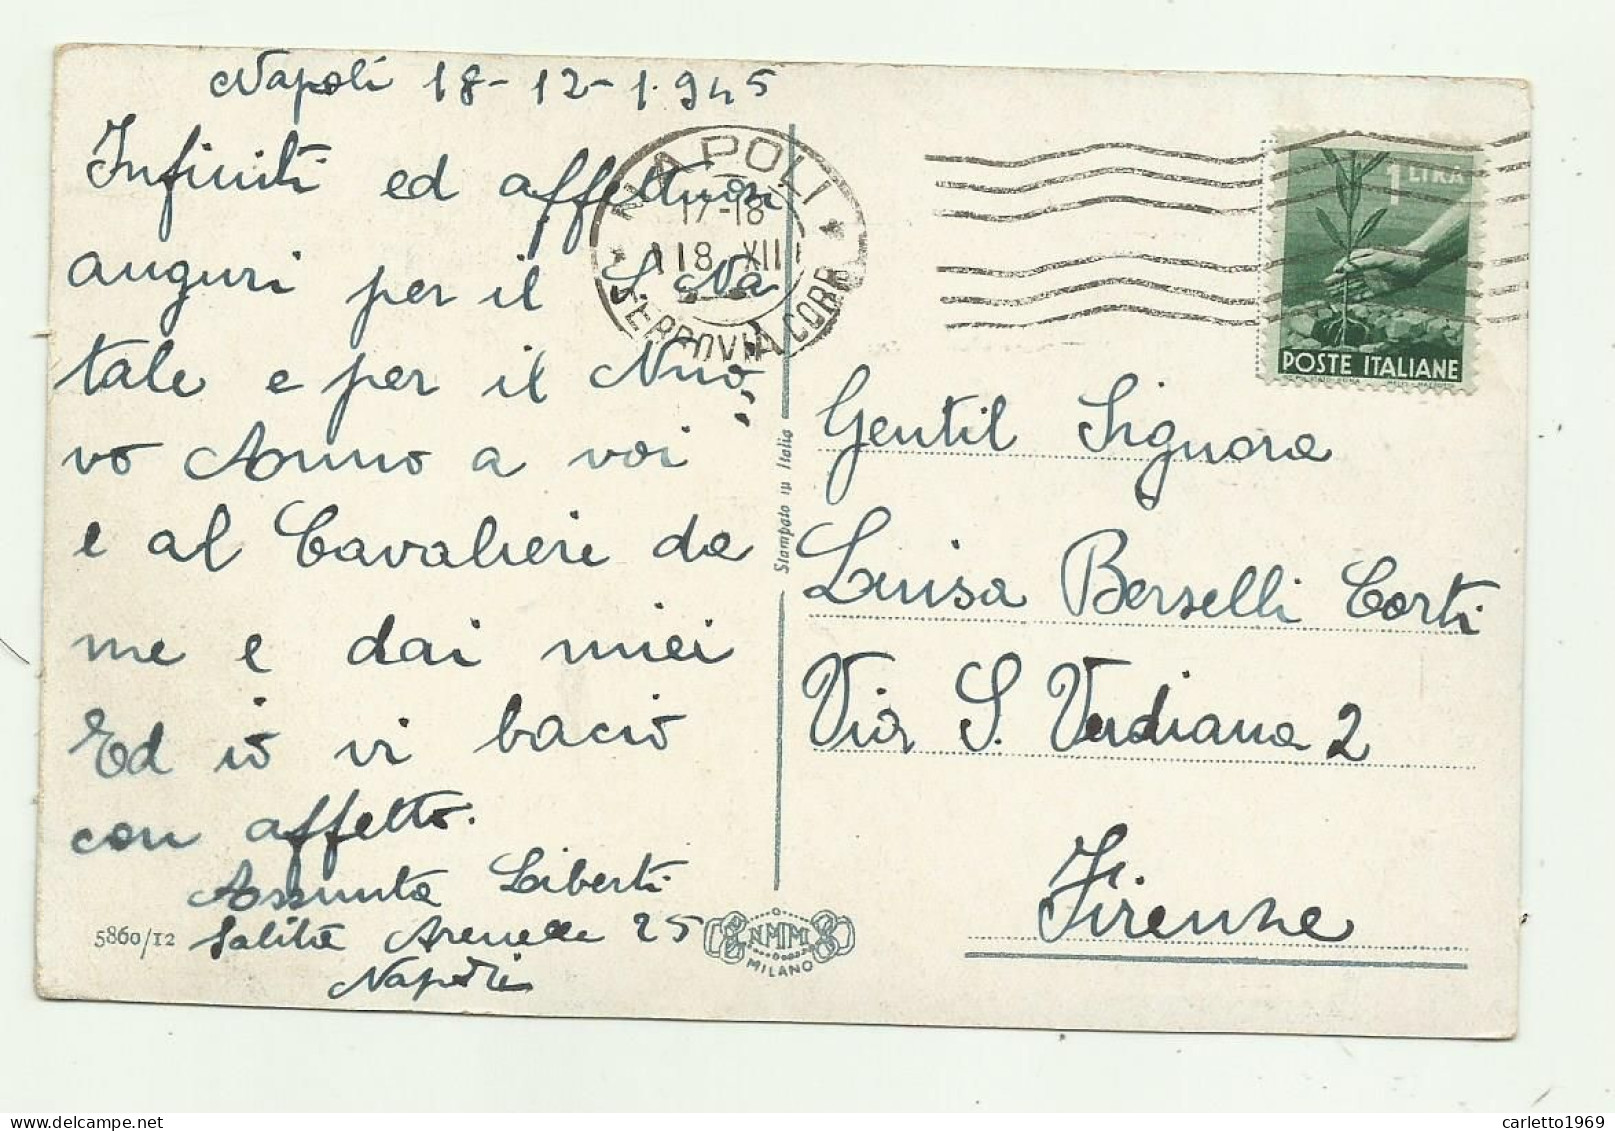 Napoli 18-12-1.945
Infiniti ed affettuosi
auguri per il S. Na
tale e per il Nuo
vo Anno a voi
e al Cavaliere da
me e dai miei
Ed io vi bacio
con affetto.
Assunta Liberti
Salita Arenella 25
Napoli
5860/12
NAPOLI
17-18
18 XII
FERROVIA CORR
Stampato in Italia
NMM
MILANO
1 LIRA
POSTE ITALIANE
Gentil Signora
Luisa Berselli Corti
Via S. Verdiana 2
Firenze
carletto1969